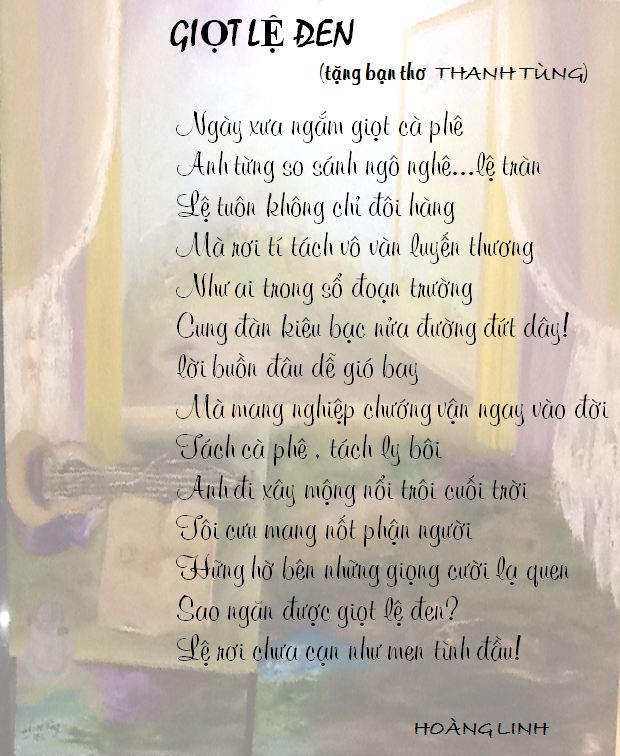 GIỌT LỆ ĐEN
(tặng bạn thơ THANH TÙNG)
Ngày xưa ngắm giọt cà phê
Anh từng so sánh ngô nghê...lệ tràn
Lệ tuôn không chỉ đôi hàng
Mà rơi tí tách vô vàn luyến thương
Như ai trong sổ đoạn trường
Cung đàn kiêu bạc nửa đường đứt dây!
lời buồn đâu dễ gió bay
Mà mang nghiệp chướng vận ngay vào đời
Tách cà phê , tách ly bôi
Anh đi xây mộng nổi trôi cuối trời
Tôi cưu mang nốt phận người
Hững hờ bên những giọng cười lạ quen
Sao ngăn được giọt lệ đen?
Lệ rơi chưa cạn như men tình đầu!
HOÀNG LINH